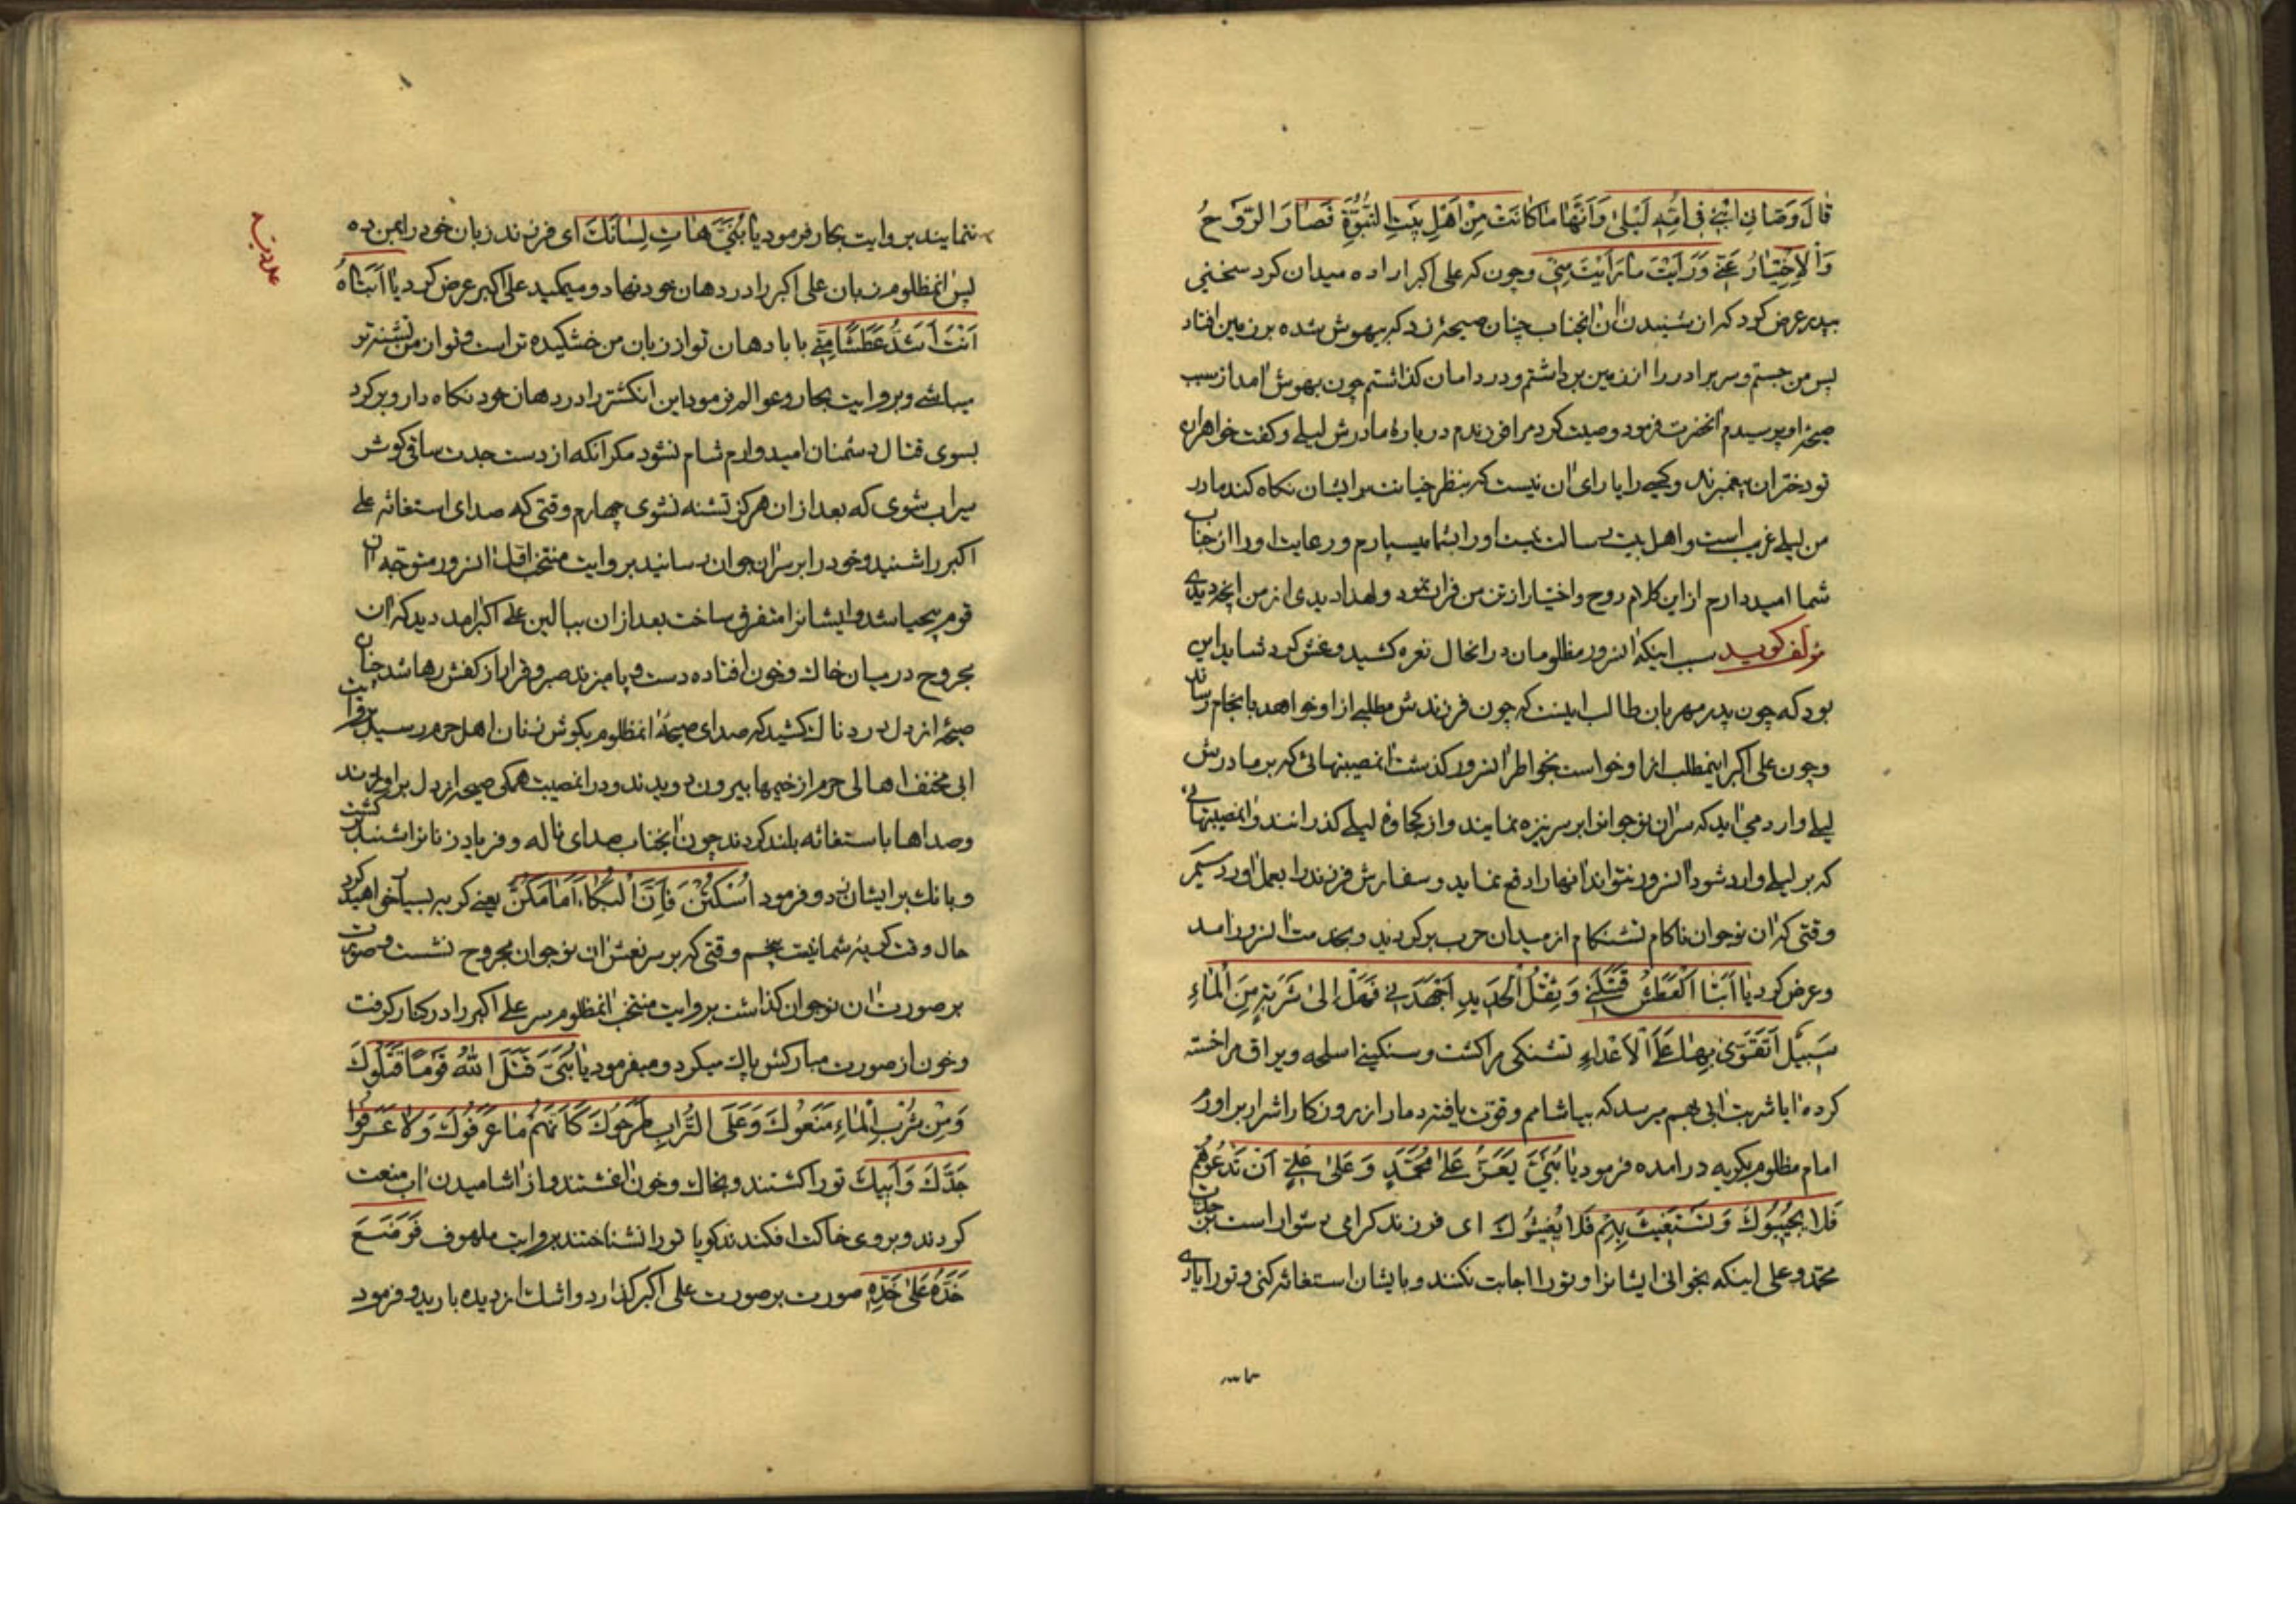 قَالَ وَصَانِی ابْنِی فِی اُمِّهِ لَیْلیٰ وَاَنَّهَا مَا کَانَتْ مِنْ اَهْلِ بَیْتِ النُّبُوَّةِ فَصَارَ الرَّوْحُ
وَالْاِخْتِیَارُ عَنّی وَرَاَیْتَ مَا رَاَیْتَ مِنّی وچون که علی اکبر اراده میدان کرد سخنی
بپدر عرض کرد که از شنیدن آن آنجناب چنان صیحهٔ زد که بیهوش شده بر زمین افتاد
پس من جستم و سر برادر را از زمین برداشتم و در دامان گذاشتم چون بهوش آمد از سبب
صیحهٔ او پرسیدم آنحضرت فرمود وصیت کرد مرا فرزندم در بارهٔ مادرش لیلی و گفت خواهران
تو دختران پیغمبرند و کسی را یارای آن نیست که بنظر خیانت بر ایشان نگاه کند مادر
من لیلی غریب است و اهل بیت رسالت نیست او را بشما میسپارم و رعایت او را از جناب
شما امید دارم از این کلام روح و اختیار از تن من فرار نمود ولهذا دیدی از من آنچه دیدی
مؤلف گوید سبب اینکه آنسرور مظلومان در آنحال نعره کشید و غش کرد شاید این
بود که چون پدر مهربان طالب اینست که چون فرزندش مطلبی از او خواهد بانجام رساند
وچون علی اکبر اینمطلب از او خواست بخاطر آنسرور گذشت آنمصیبتهائی که بر مادرش
لیلی وارد می آید که سر آن نوجوانرا بر سر نیزه نمایند و از کجاوهٔ لیلی گذرانند و آنمصیبتهائی
که بر لیلی وارد شود آنسرور نتواند آنها را دفع نماید و سفارش فرزند را بعمل آورد سیم
وقتی که آن نوجوان ناکام تشنکام از میدان حرب برگردید و بخدمت آنسرور آمد
وعرض کرد یَا اَبَتَا اَلْعَطَشُ قَتَلَنی وَ ثِقْلُ الْحَدیدِ اَجْهَدَنی فَهَلْ اِلیٰ شَرْبَةٍ مِنَ الْمَاءِ
سَبیلٌ اَتَقَوّیٰ بِهَا عَلَی الْاَعْدَاءِ تشنگی مرا کشت و سنگینی اسلحه و یراق مرا خسته
کرده آیا شربت آبی بهم میرسد که بیاشامم و قوت یافته دمار از روزگار اشرار بر آورم
امام مظلوم بگریه در آمده فرمود یَا بُنَیَّ یَعَزُّ عَلیٰ مُحَمَّدٍ وَ عَلیٰ عَلِیٍّ اَنْ تَدْعُوَهُمْ
فَلَا یُجیبُوكَ وَ تَسْتَغیثَ بِهِمْ فَلَا یُغیثُوكَ ای فرزند گرامی دشوار است بر جدت
محمد و علی اینکه بخوانی ایشانرا و تو را اجابت نکنند و بایشان استغاثه کنی و تو را یاری
ننمایند بروایت بحار فرمود یَا بُنَیَّ هَاتِ لِسَانَكَ ای فرزند زبان خود را بمن ده
پس آنمظلوم زبان علی اکبر را در دهان خود نهاد و میمکید علی اکبر عرض کرد یَا اَبَتَاهُ
اَنْتَ اَشَدُّ عَطَشًا مِنّی بابا دهان تو از زبان من خشکیده تر است و تو از من تشنه تر
میباشی و بروایت بحار و عوالم فرمود این انگشتر را در دهان خود نگاه دار و برگرد
بسوی قتال دشمنان امیدوارم شام نشود مگر آنکه از دست جدت ساقی کوثر
سیراب شوی که بعد از آن هرگز تشنه نشوی چهارم وقتی که صدای استغاثه علی
اکبر را شنید و خود را بر سر آن جوان رسانید بروایت منتخب اقل آنسرور متوجه آن
قوم بیحیا شد و ایشانرا متفرق ساخت بعد از آن ببالین علی اکبر آمد دید که آن
مجروح در میان خاك و خون افتاده دست و پا میزند صبر و قرار از کفش رها شد چنان
صیحهٔ از دل دردناك کشید که صدای صیحهٔ آنمظلوم بگوش زنان اهل حرم رسید بروایت
ابی مخنف اهالی حرم از خیمها بیرون دویدند و در آنمصیبت همگی صیحه از دل بر آوردند
وصداها باستغاثه بلند کردند چون آنجناب صدای ناله و فریاد زنانرا شنید برگشت
و بانك بر ایشان زد و فرمود اُسْکُتْنَ فَاِنَّ الْبُکَاءَ اَمَامَکُنَّ یعنی گریه بسیار خواهید کرد
حال وقت گریه شما نیست پنجم وقتی که بر سر نعش آن نوجوان مجروح نشست و صورت
بر صورت آن نوجوان گذاشت بروایت منتخب آنمظلوم سر علی اکبر را در کنار گرفت
وخون از صورت مبارکش پاك میکرد و میفرمود یَا بُنَیَّ قَتَلَ اللّٰهُ قَوْمًا قَتَلُوكَ
وَمِنْ شُرْبِ الْمَاءِ مَنَعُوكَ وَعَلَی التُّرَابِ طَرَحُوكَ کَاَنَّهُمْ مَا عَرَفُوكَ وَلَا عَرَفُوا
جَدَّكَ وَ اَبِیكَ تو را کشتند و بخاك و خون آغشتند و از آشامیدن آب منعت
کردند و بروی خاکت افکندند گویا تو را نشناختند بروایت ملهوف فَوَضَعَ
خَدَّهُ عَلیٰ خَدِّهِ صورت بر صورت علی اکبر گذارد و اشك از دیده بارید و فرمود